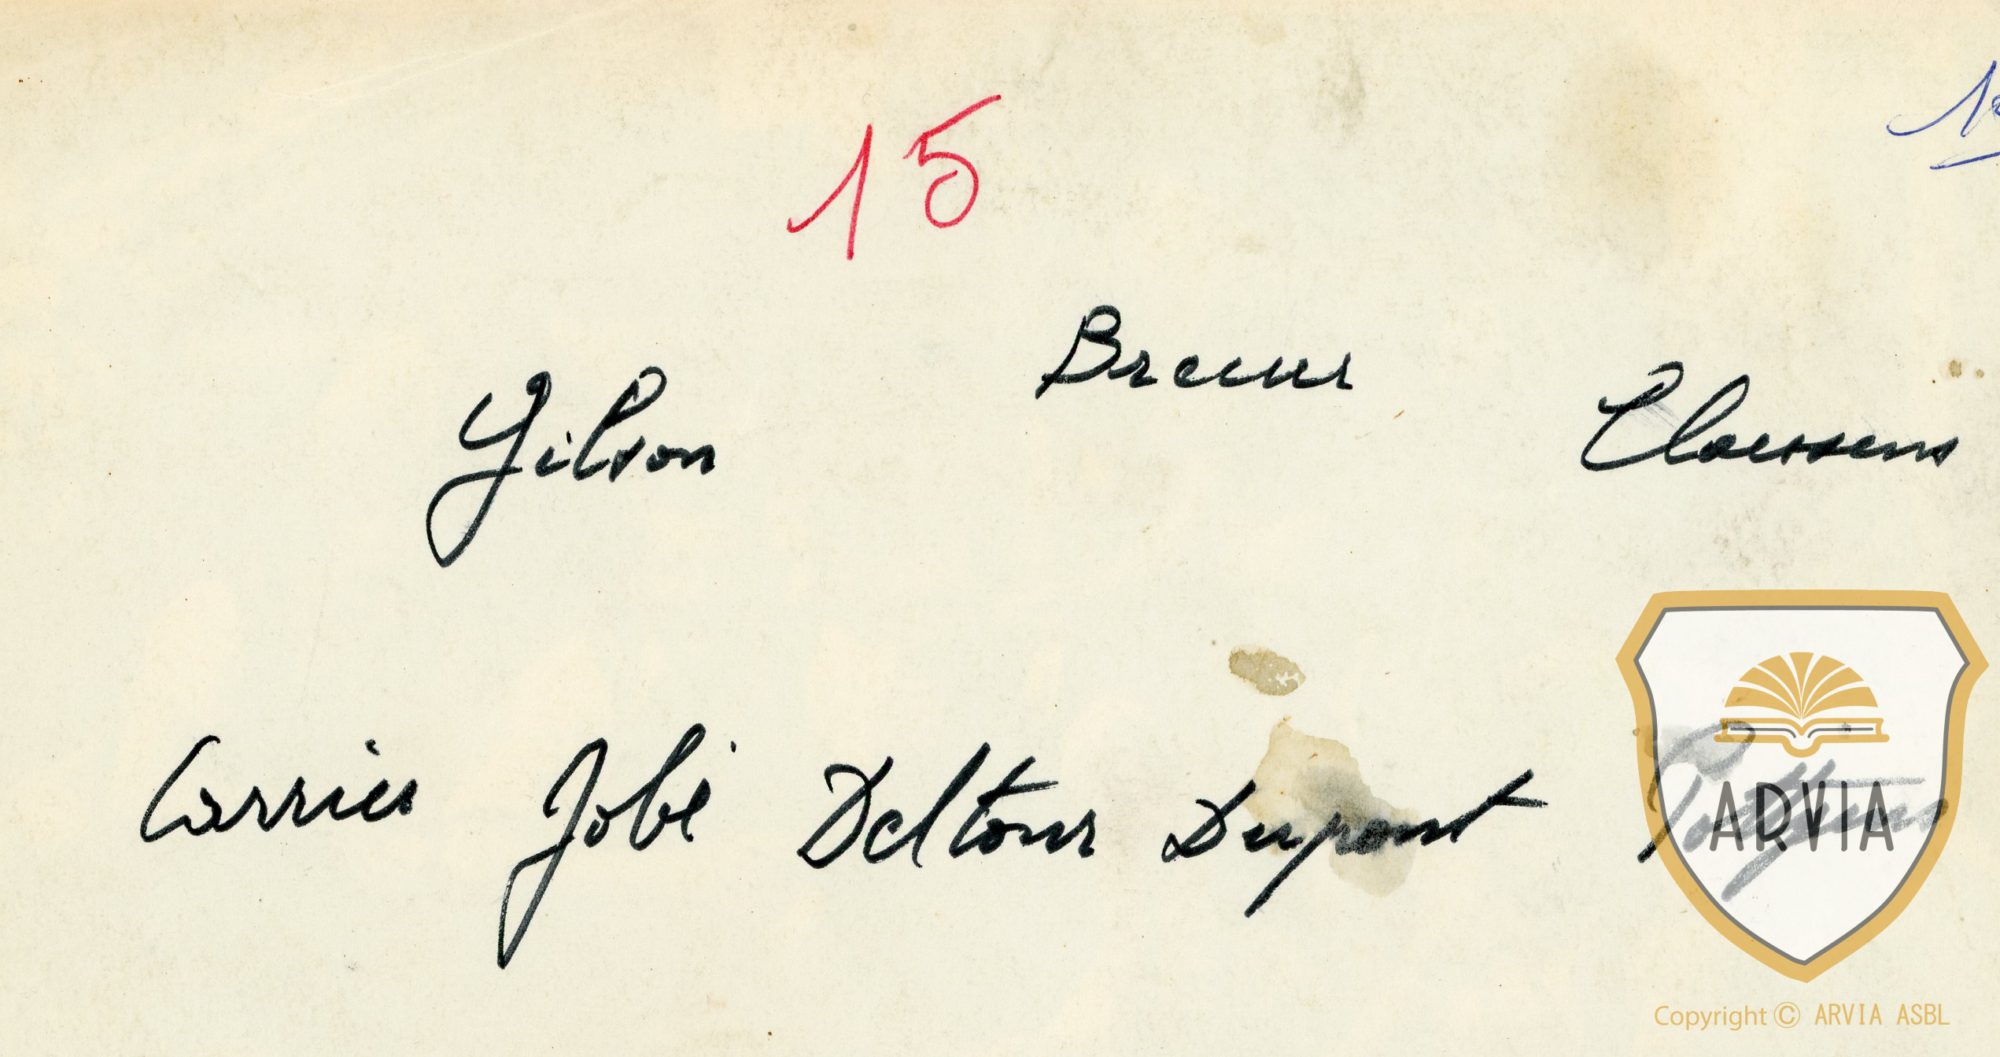 15
Breuer
Gilson Claessens
Carrier Jobé Deltour Dupont
ARVIA
Copyright © ARVIA ASBL